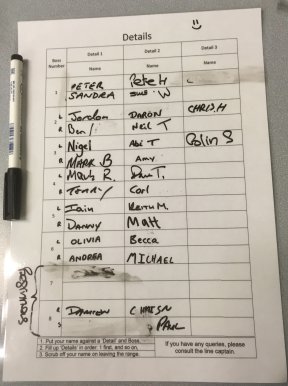 Details
Boss Number Detail 1 Detail 2 Detail 3
Name Name Name
1 PETER Pete H
SANDRA SUE W
2 L Jordan DARON CHRIS.H
R Ben Neil T
3 L Nigel Abi T Colin S
R MARK B Amy
4 L Mark R. Dan T.
R TERRY Carl
5 L Iain KEITH M.
R DANNY Matt
6 L OLIVIA Becca
R ANDREA MICHAEL
7
Beginners
8 R DAMION
S PAUL
1. Put your name against a 'Detail' and Boss.
2. Fill up 'Details' in order: 1 first, and so on.
3. Scrub off your name on leaving the range.
If you have any queries, please
consult the line captain.